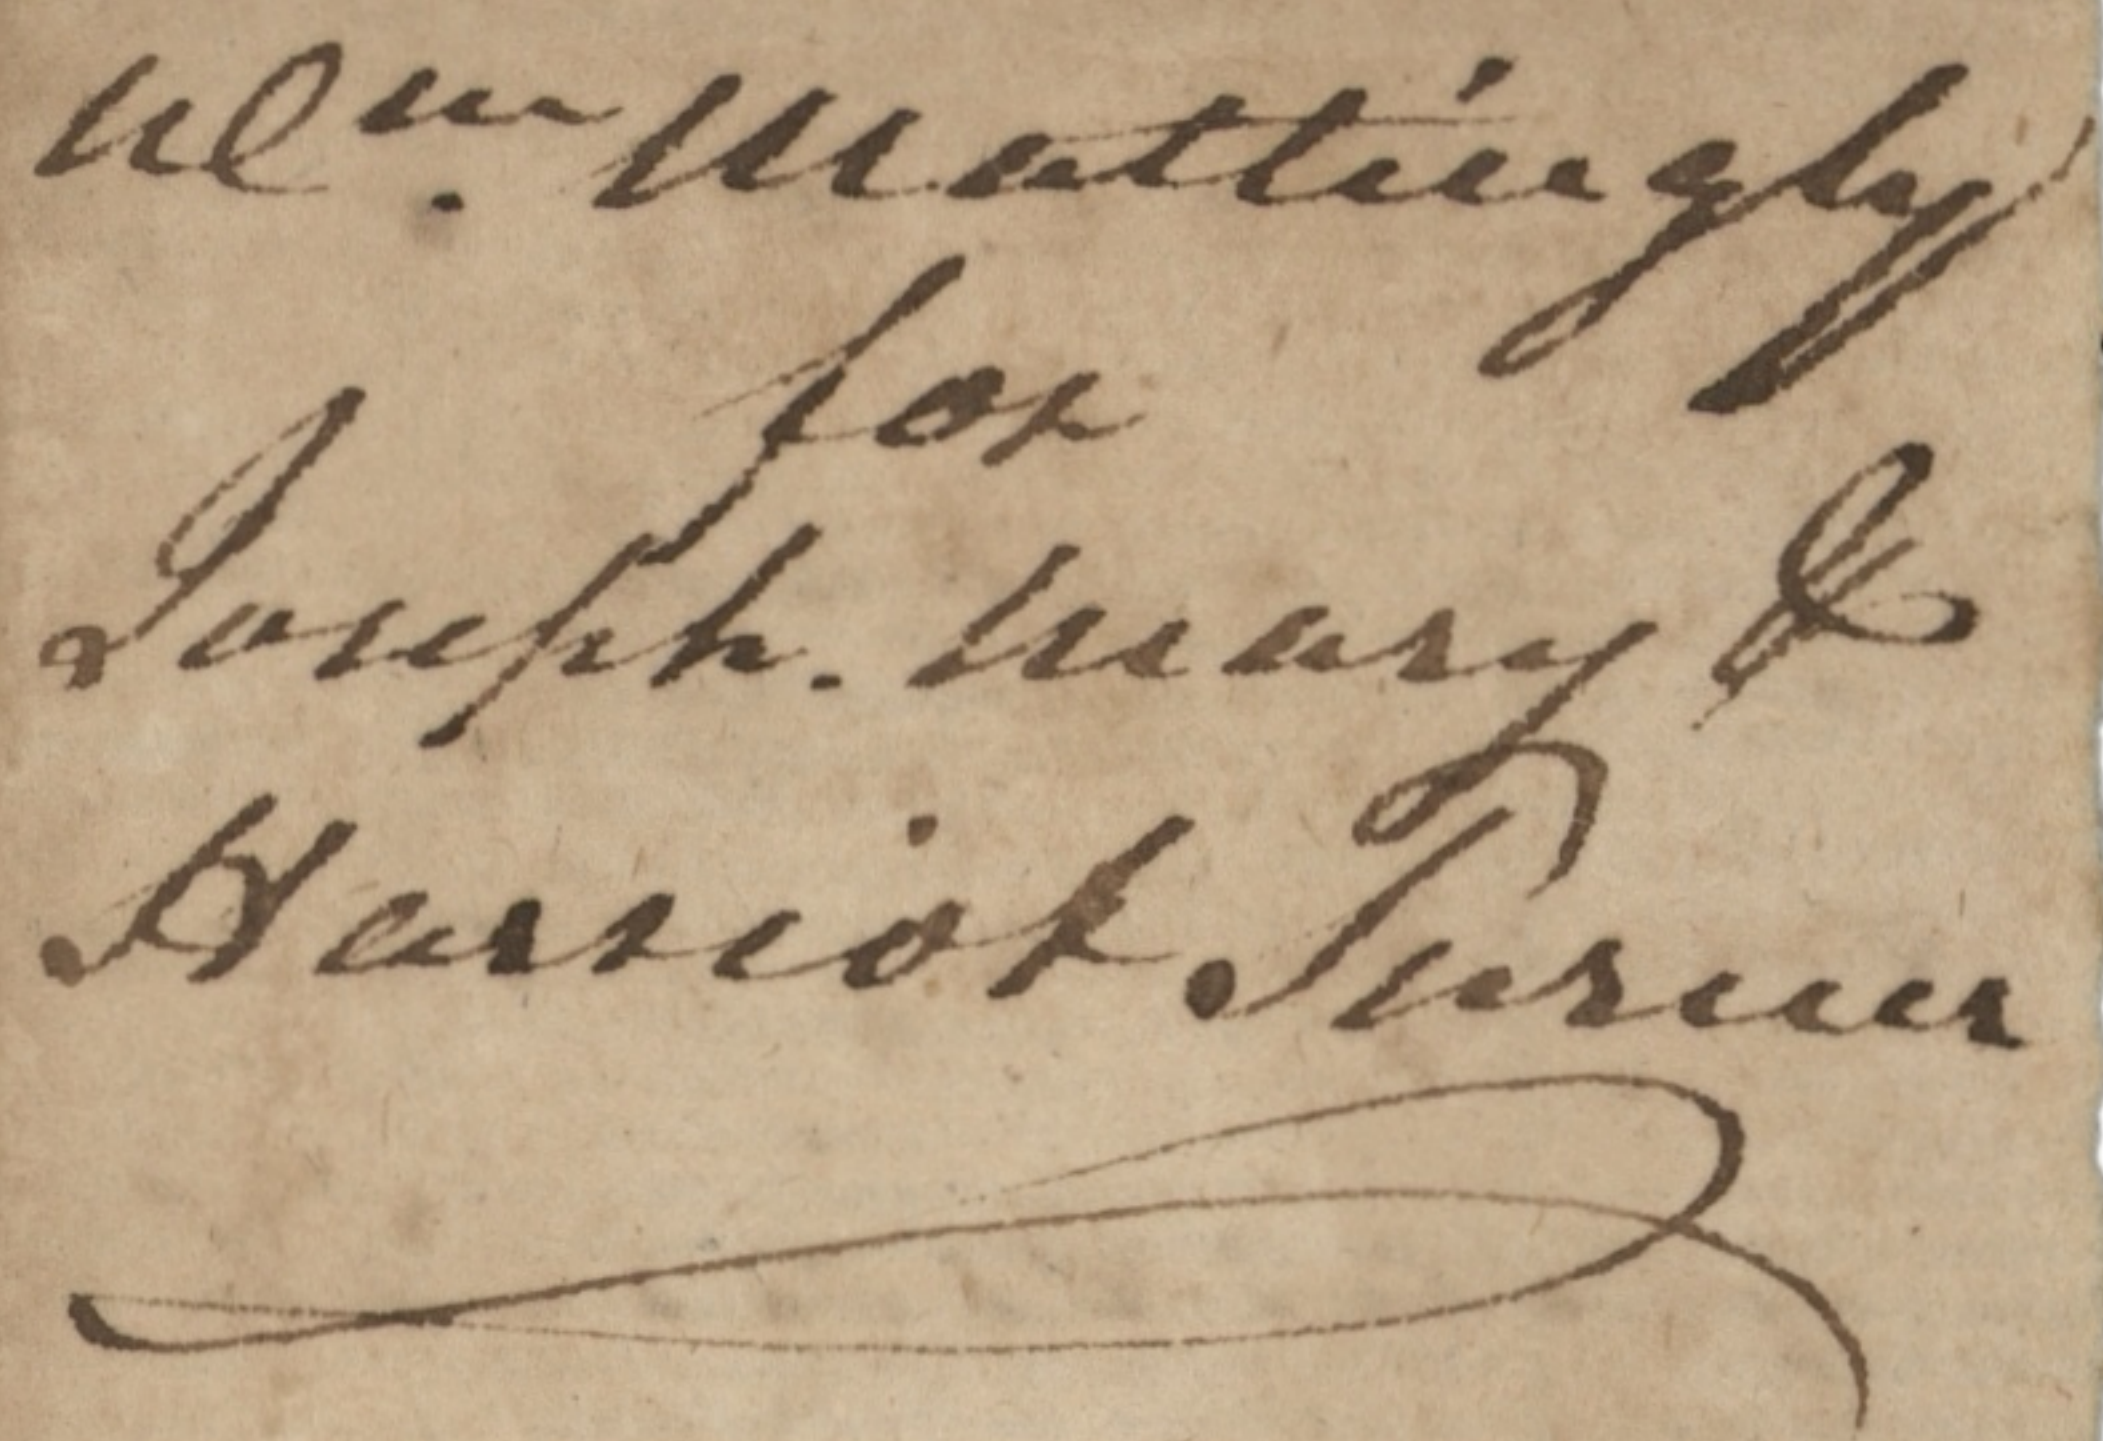 Wm. Mattingly
for
Joseph. Mary &
Harriot Turner